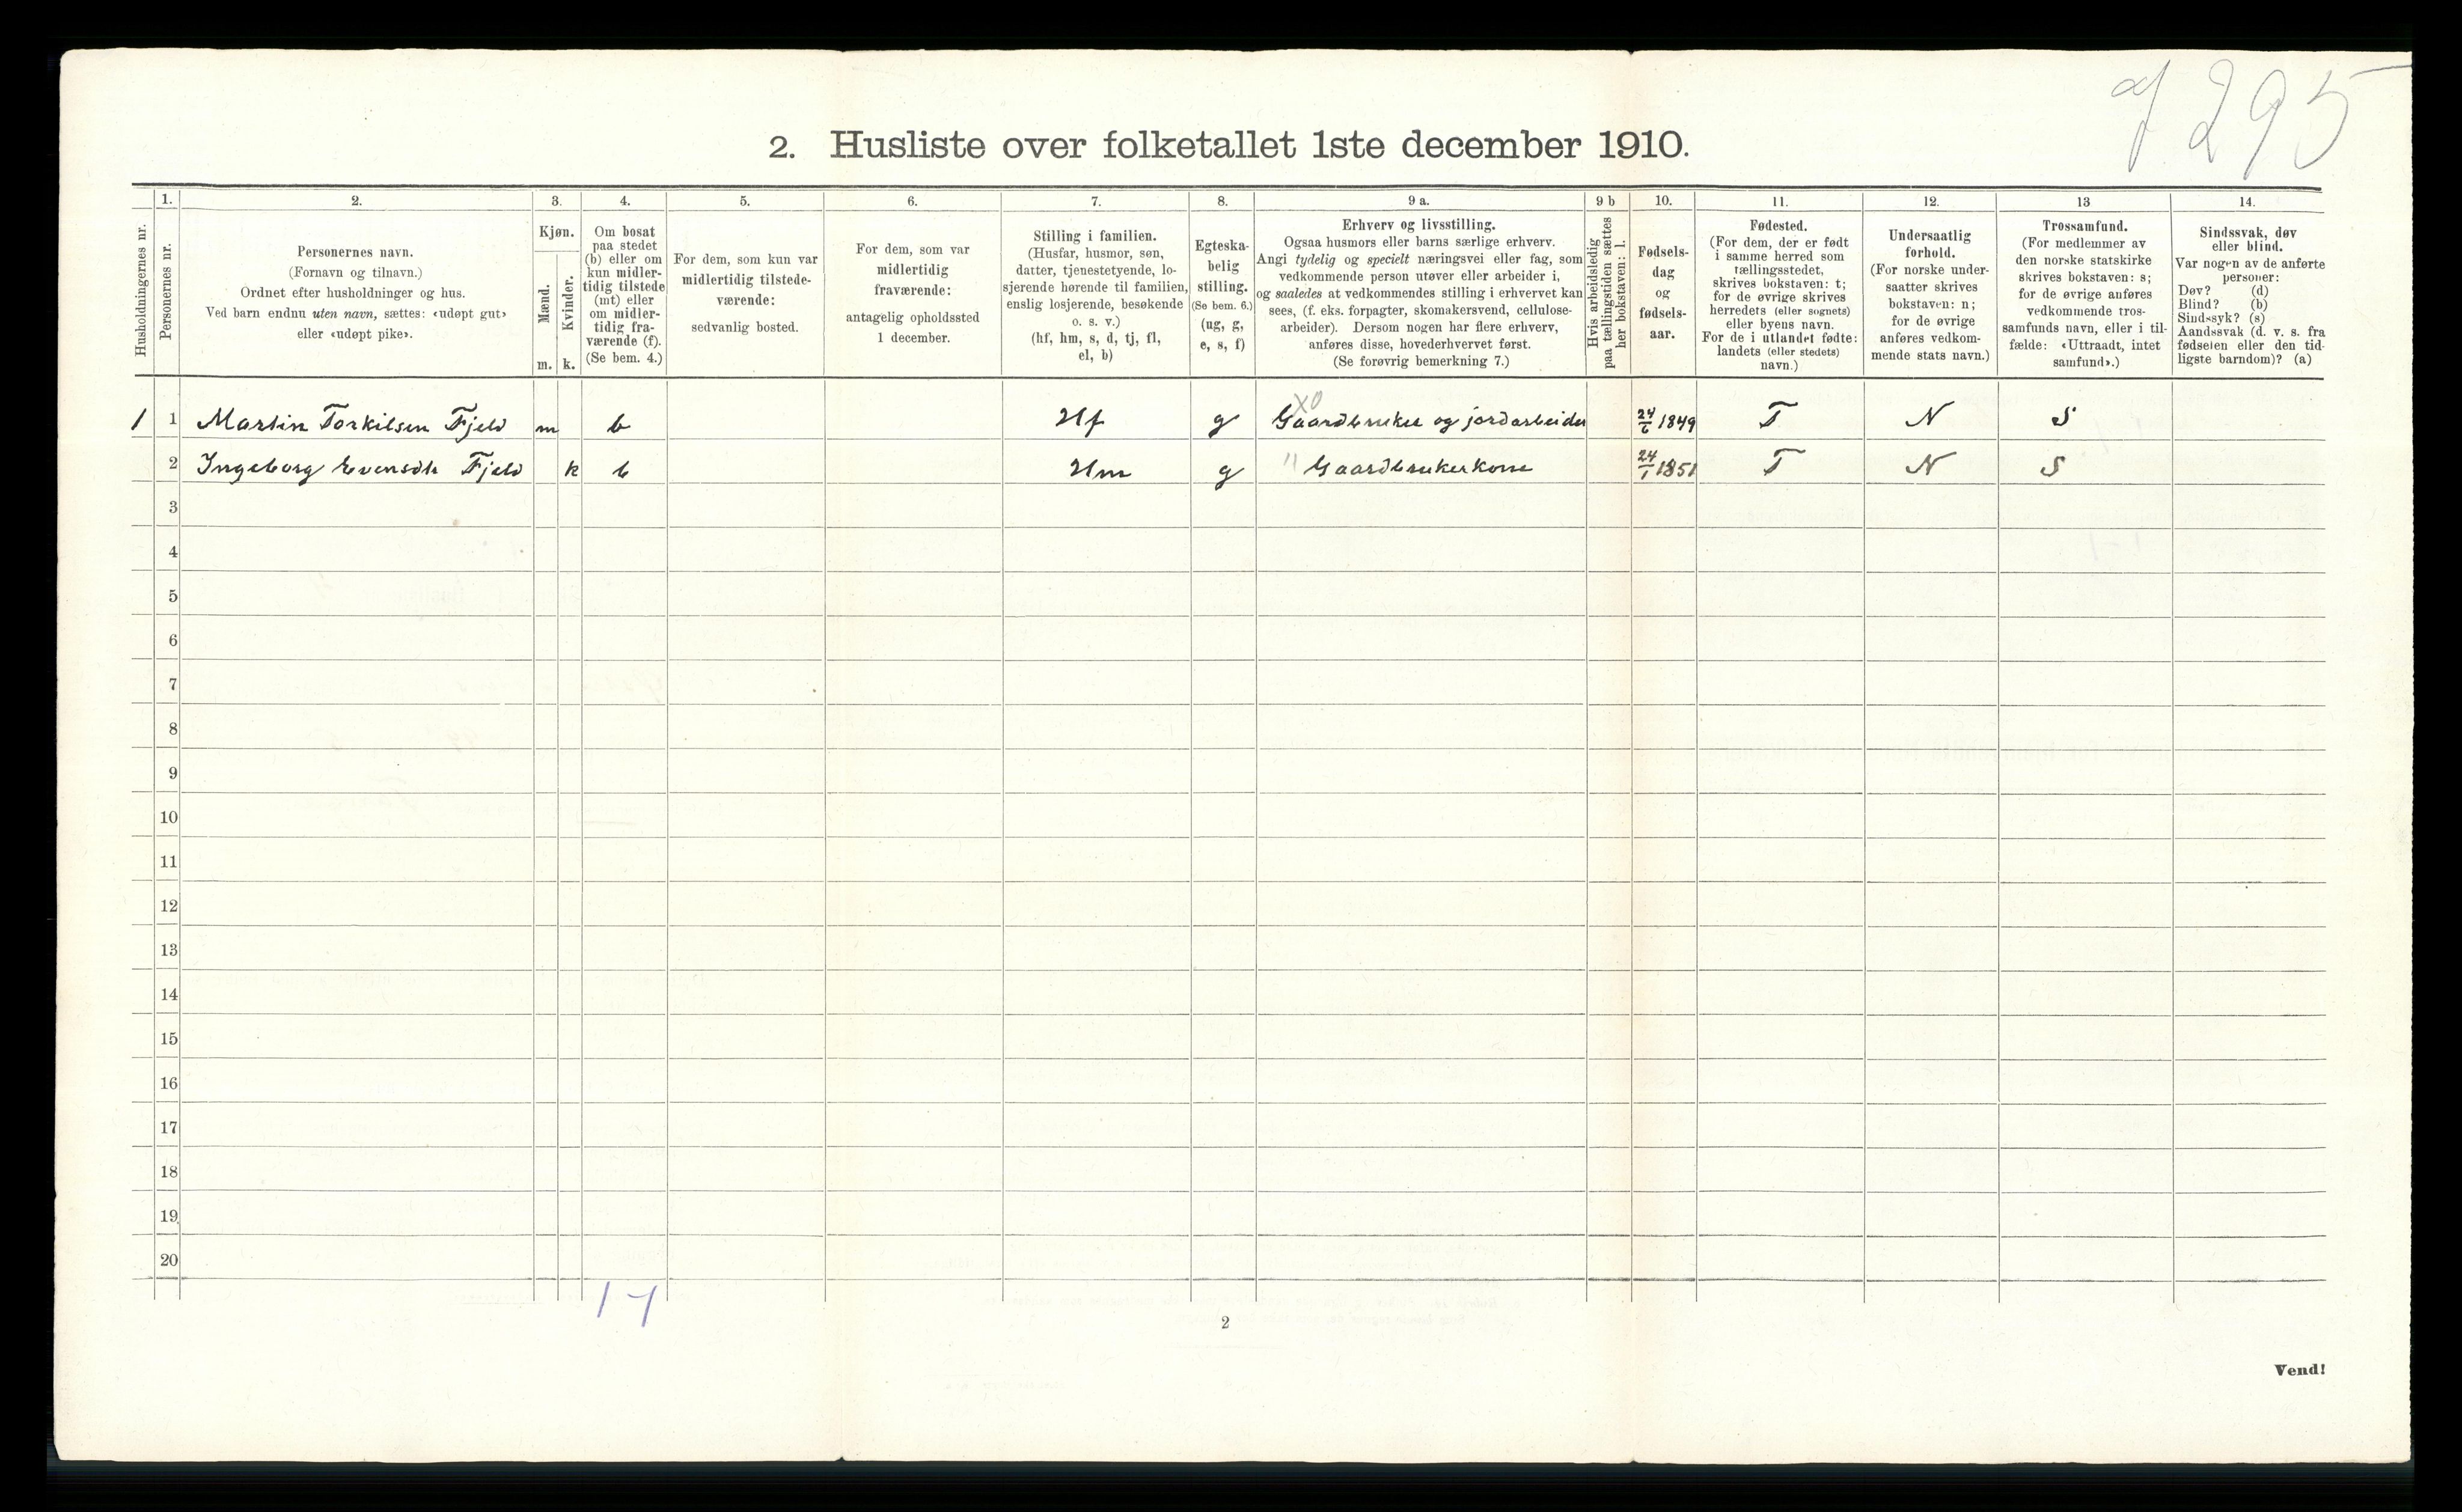 295
2. Husliste over folketallet 1ste december 1910.
1. 2. 3. 4. 5. 6. 7. 8. 9 a. 9 b 10. 11. 12. 13 14.
Husholdningernes nr.
Personernes nr.
Personernes navn.
(Fornavn og tilnavn.)
Ordnet efter husholdninger og hus.
Ved barn endnu uten navn, sættes: «udøpt gut»
eller «udøpt pike».
Kjøn.
Mænd.
m.
Kvinder.
k.
Om bosat
paa stedet
(b) eller om
kun midler-
tidig tilstede
(mt) eller
om midler-
tidig fra-
værende (f).
(Se bem. 4.)
For dem, som kun var
midlertidig tilstede-
værende:
sedvanlig bosted.
For dem, som var
midlertidig
fraværende:
antagelig opholdssted
1 december.
Stilling i familien.
(Husfar, husmor, søn,
datter, tjenestetyende, lo-
sjerende hørende til familien,
enslig losjerende, besøkende
o. s. v.)
(hf, hm, s, d, tj, fl,
el, b)
Egteska-
belig
stilling.
(Se bem. 6.)
(ug, g,
e, s, f)
Erhverv og livsstilling.
Ogsaa husmors eller barns særlige erhverv.
Angi tydelig og specielt næringsvei eller fag, som
vedkommende person utøver eller arbeider i,
og saaledes at vedkommendes stilling i erhvervet kan
sees, (f. eks. forpagter, skomakersvend, cellulose-
arbeider). Dersom nogen har flere erhverv,
anføres disse, hovederhvervet først.
(Se forøvrig bemerkning 7.)
Hvis arbeidsledig
paa tællingstiden sættes
her bokstaven: l.
Fødsels-
dag
og
fødsels-
aar.
Fødested.
(For dem, der er født
i samme herred som
tællingsstedet,
skrives bokstaven: t;
for de øvrige skrives
herredets (eller sognets)
eller byens navn.
For de i utlandet fødte:
landets (eller stedets)
navn.)
Undersaatlig
forhold.
(For norske under-
saatter skrives
bokstaven: n;
for de øvrige
anføres vedkom-
mende stats navn.)
Trossamfund.
(For medlemmer av
den norske statskirke
skrives bokstaven: s;
for de øvrige anføres
vedkommende tros-
samfunds navn, eller i til-
fælde: «Uttraadt, intet
samfund».)
Sindssvak, døv
eller blind.
Var nogen av de anførte
personer:
Døv? (d)
Blind? (b)
Sindssyk? (s)
Aandssvak (d. v. s. fra
fødselen eller den tid-
ligste barndom)? (a)
X0
1 1 Martin Torkilsen Fjeld m b Hf g Gaardbruker og jordarbeider 24/6 1849 T N S
2 Ingeborg Evensdtr Fjeld k b Hm g " Gaardbrukerkone 24/1 1851 T N S
3
4
5
6
7
8
9
10
11
12
13
14
15
16
17
18
19
20
1 -1
2
Vend!